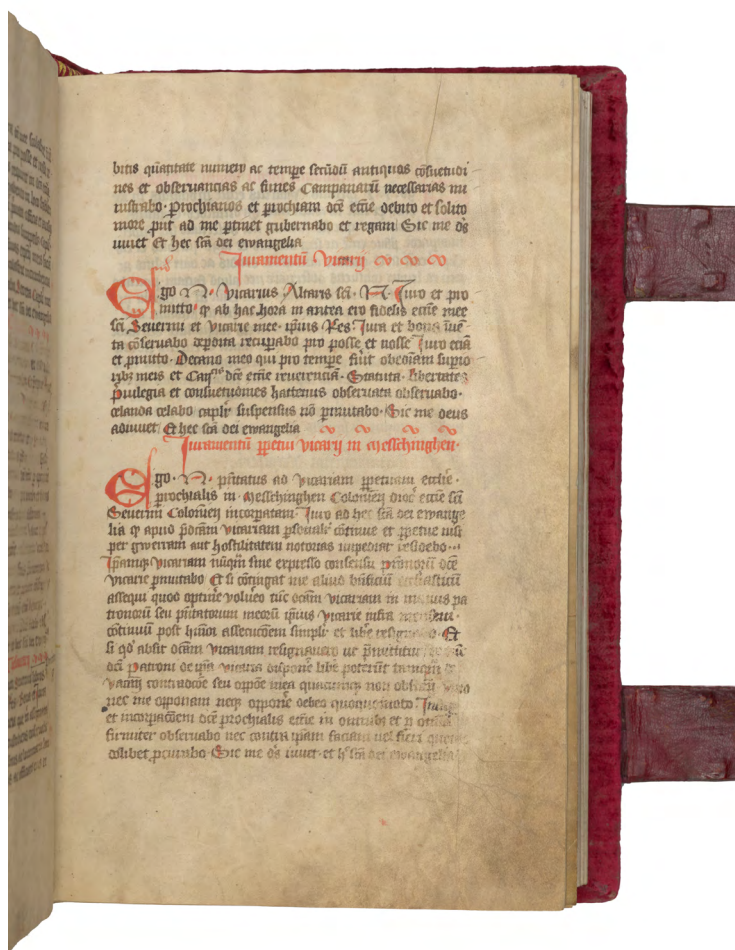 bitis qūatitate numero ac tempe secūdū antiquas cōsuetudi
nes et observancias ac funes Campanarū necessarias mi
nistrabo · prochianos et prochiam dcē ecctie debito et solito
more put ad me ptinet gubernabo et regam Sic me ds̄
iuuet Et hec scā dei ewangelia
Iuramentū vicarij
Ego · N · vicarius Altaris scī · N · Iuro et pro
mitto ꝙ ab hac hora in antea ero fidelis ecctie mee
scī Seuerini et vicarie mee · ipius Res Iura et bona īuē
ta cōseruabo dependita recupabo pro posse et nosse Iuro eciā
et pmitto · Decano meo qui pro tempe fūit obediam supio
ribz meis et dcē ecctie reuerenciā · Statuta · libertates
priuilegia et consuetudines hactenus obseruata obseruabo ·
celanda celabo capli · suspensus nō pmutabo · Sic me deus
adiuuet Et hec scā dei ewangelia
Iuramentū ppetui vicarij in Messchinghen ·
Ego · N · pūtatus ad vicariam ppetuam ecctie ·
prochialis in Messchinghen Coloniens̄ dioc̄ ecctie scī
Seuerini Coloniens̄ incorpatam · Iuro ad hec scā dei ewange
lia ꝙ apud pdcām vicariam psonalr̄ cōtinue et ppetue nisi
per gwerram aut hostilitatem notorias impediar residebo ·
Ipamqꝫ vicariam nūqm̄ sine expresso consensu pronorū dcē
vicarie pmutabo Et si cōtingat me aliud bn̄ficiū
assequi quod optine voluero tūc dcām vicariam in manus pa
tronorū seu pn̄tatorum meorū ipius vicarie infra
continuū post hm̄oi assecucōem simplr̄ et libe resignabo · Et
si qd̄ absit dcām vicariam resignauero ut pmittitur
dcī Patroni de ipa vicaria dispone libe poterūt tamqm̄ de
vacāti contradccōe seu oppōne mea quacumqꝫ non obstāte
nec me opponam neqꝫ opponē debeo quoquomodo
et incorpacōem dcē prochialis ecctie in omnibꝫ et p omnia
firmiter obseruabo nec contra ipam faciam uel fieri
dolibet pcurabo · Sic me ds̄ iuuet · et hᶜ scā dei ewangelia ·